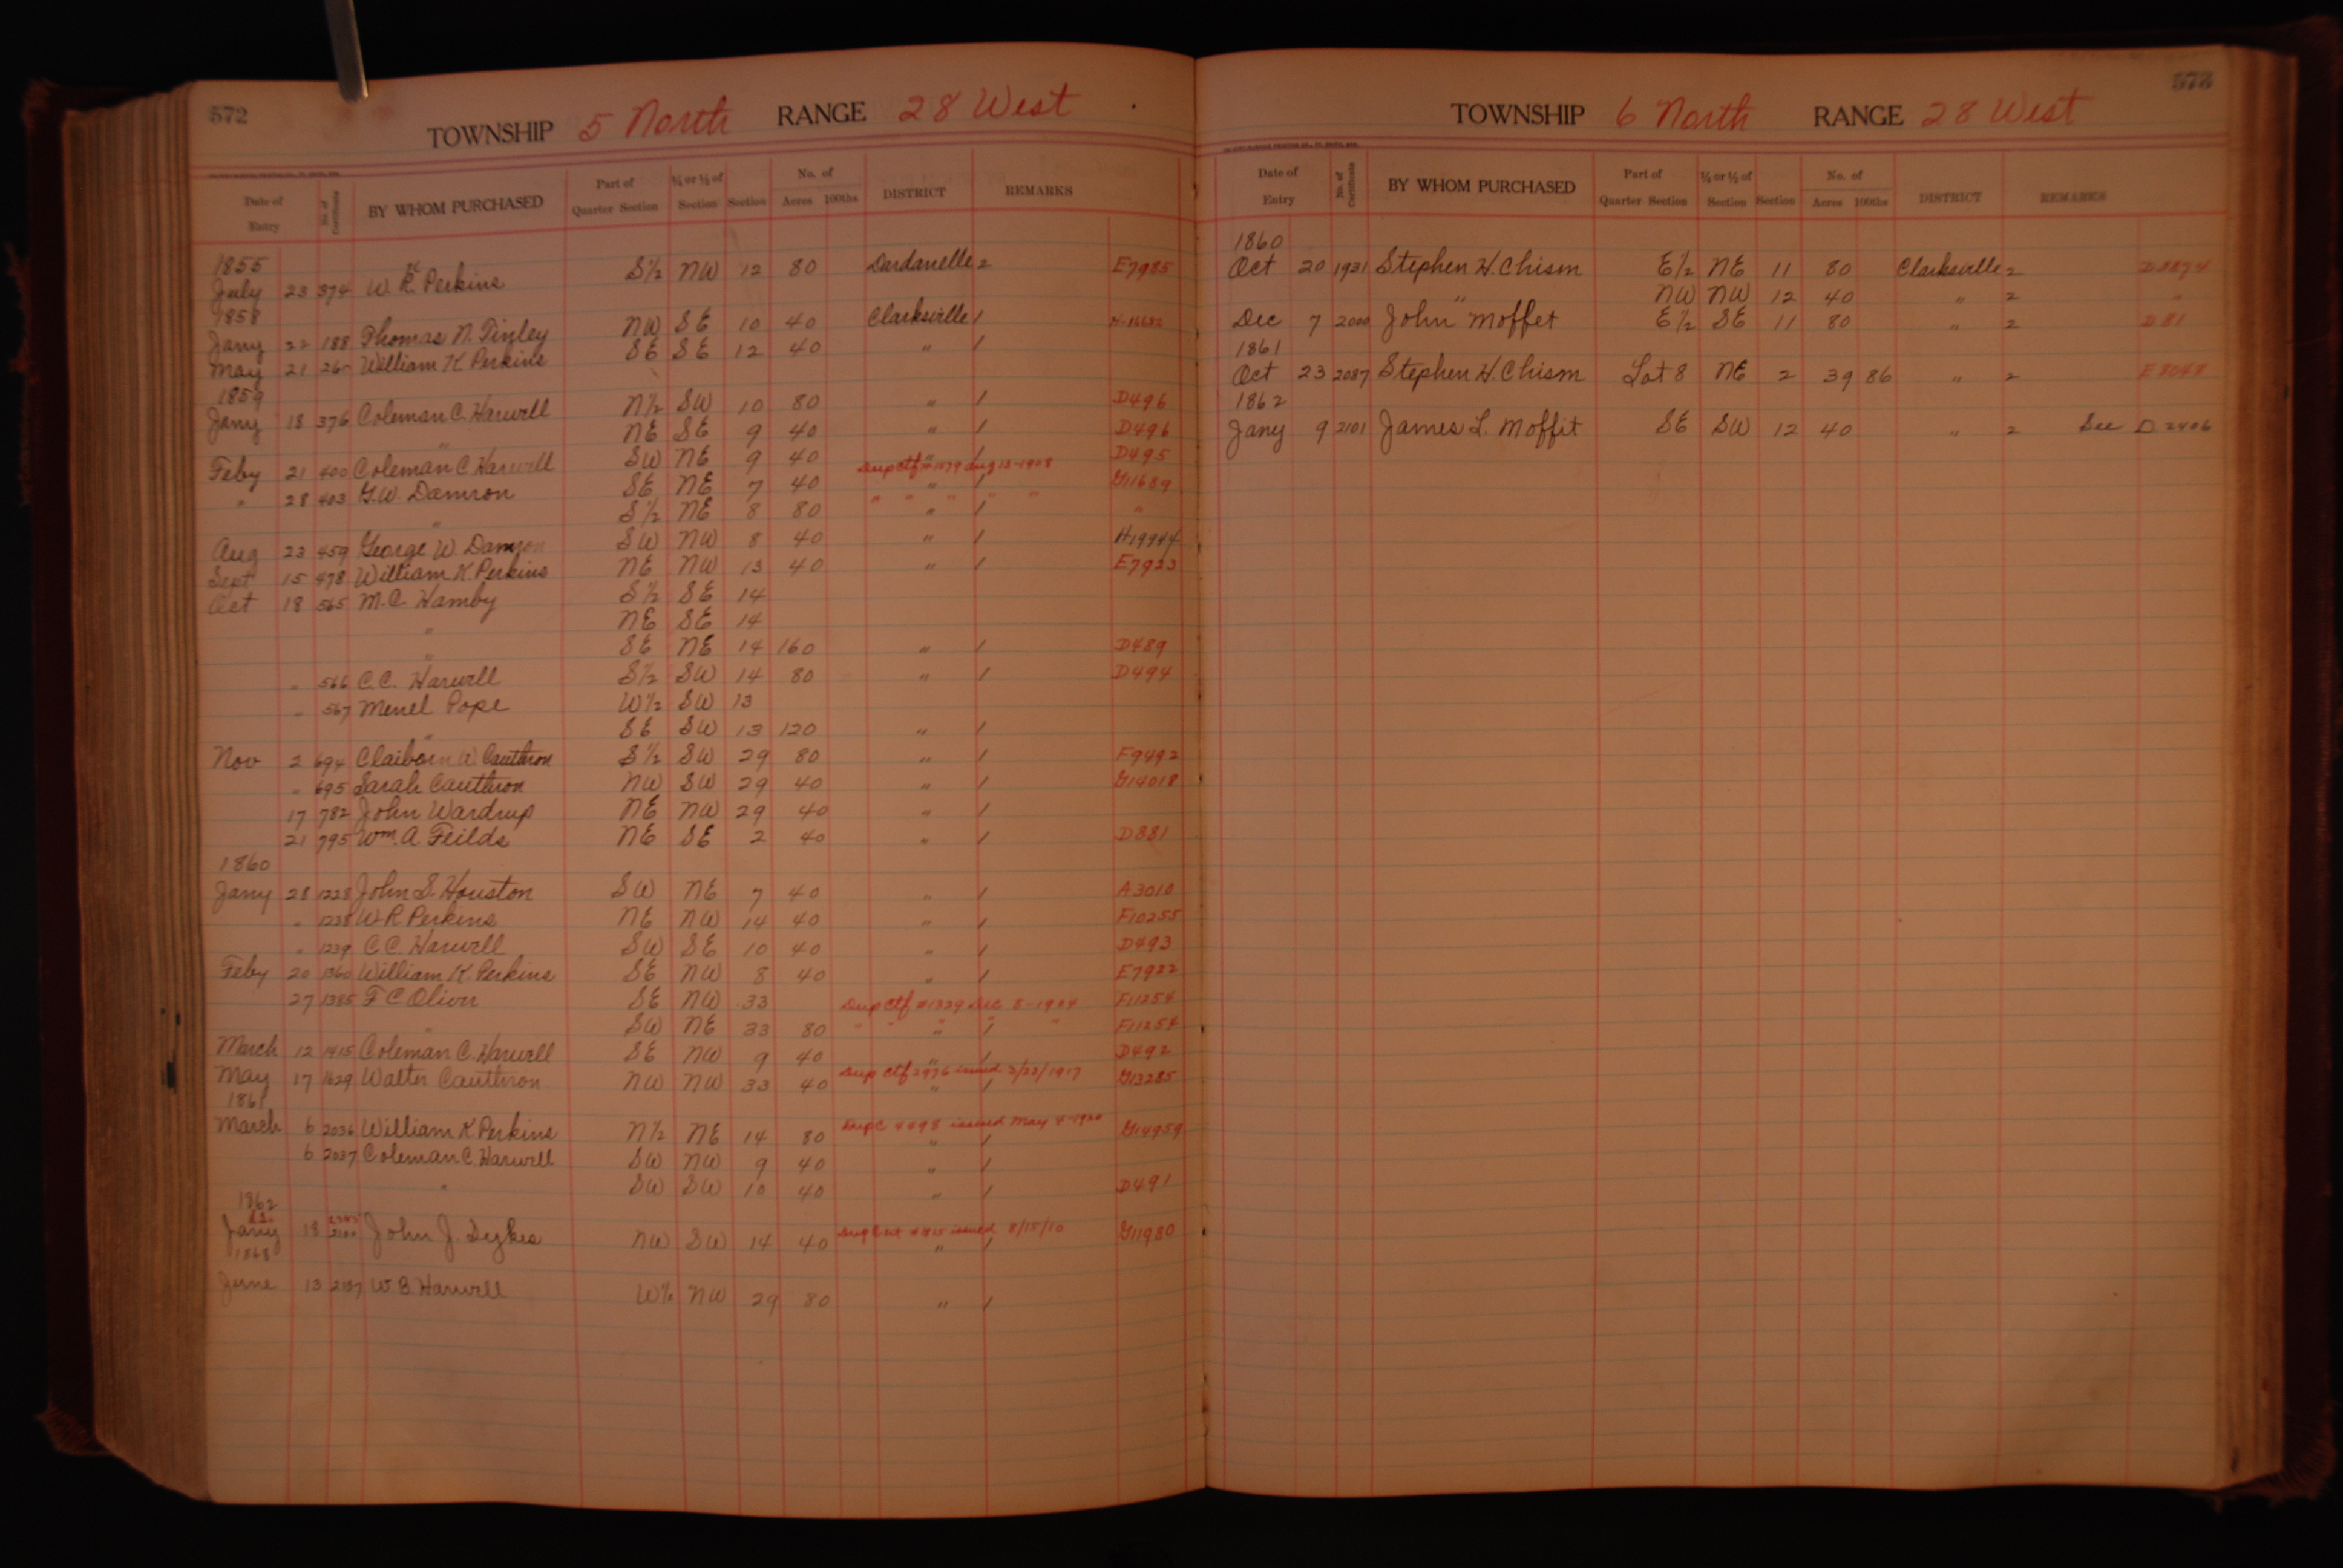 572
TOWNSHIP 5 North RANGE 28 West
Date of Entry No. of Certificate BY WHOM PURCHASED Part of Quarter Section ¼ or ½ of Section Section No. of Acres 100ths DISTRICT REMARKS
1855
July 23 374 W. K. Perkins S½ NW 12 80 Dardanelle 2 E7985
1858
Jany 22 188 Thomas N. Tinley NW SE 10 40 Clarksville 1
May 21 William K Perkins SE SE 12 40 " 1
1859
Jany 18 376 Coleman C. Harwell N½ SW 10 80 " 1 D496
" NE SE 9 40 " 1 D496
Feby 21 400 Coleman C Harwell SW NE 9 40 " 1 D495
Dup Ctf #1579 Aug 13-1908
" 28 403 G.W. Damron SE NE 7 40 " 1 G11689
" " " " "
" S½ NE 8 80 " 1 "
Aug 23 459 George W. Damron SW NW 8 40 " 1 H19944
Sept 15 478 William K. Perkins NE NW 13 40 " 1 E7923
Oct 18 565 M.C. Hamby S½ SE 14
" NE SE 14
" SE NE 14 160 " 1 D489
" 566 C.C. Harwell S½ SW 14 80 " 1 D494
" 567 Menel Pope W½ SW 13
" SE SW 13 120 " 1
Nov 2 694 Claiborn W. Cauthron S½ SW 29 80 " 1 F9492
" 695 Sarah Cauthron NW SW 29 40 " 1 G14018
17 782 John Wardrup NE NW 29 40 " 1
21 795 Wm. A. Feilds NE SE 2 40 " 1 D881
1860
Jany 28 1228 John S. Houston SW NE 7 40 " 1 A3010
" 1238 W R Perkins NE NW 14 40 " 1 F10255
" 1239 C.C. Harwell SW SE 10 40 " 1 D493
Feby 20 1360 William K. Perkins SE NW 8 40 " 1 E7922
27 1385 F C Oliver SE NW 33 Dup Ctf #1329 Dec 8-1904 F11254
" SW NE 33 80 " 1 F11254
March 12 1415 Coleman C. Harwell SE NW 9 40 " 1 D492
Dup Ctf 2976 issued 3/23/1917
May 17 1629 Walter Cauthron NW NW 33 40 " 1 G13285
1861
Dup C 4498 issued May 4-1920
March 6 2036 William K Perkins N½ NE 14 80 " 1 G14959
6 2037 Coleman C. Harwell SW NW 9 40 " 1
" SW SW 10 40 " 1 D491
1862
Jany 18 John J. Dykes NW SW 14 40 issued 8/15/10 " 1 G11980
1868
June 13 2137 W B Harwell W½ NW 29 80 " 1
573
TOWNSHIP 6 North RANGE 28 West
Date of Entry No. of Certificate BY WHOM PURCHASED Part of Quarter Section ¼ or ½ of Section Section No. of Acres 100ths DISTRICT REMARKS
1860
Oct 20 1931 Stephen H. Chism E½ NE 11 80 Clarksville 2
" NW NW 12 40 " 2 "
Dec 7 2000 John Moffet E½ SE 11 80 " 2 D81
1861
Oct 23 2087 Stephen H. Chism Lot 8 NE 2 39 86 " 2 E8048
1862
Jany 9 2101 James L. Moffit SE SW 12 40 " 2 See D 2406